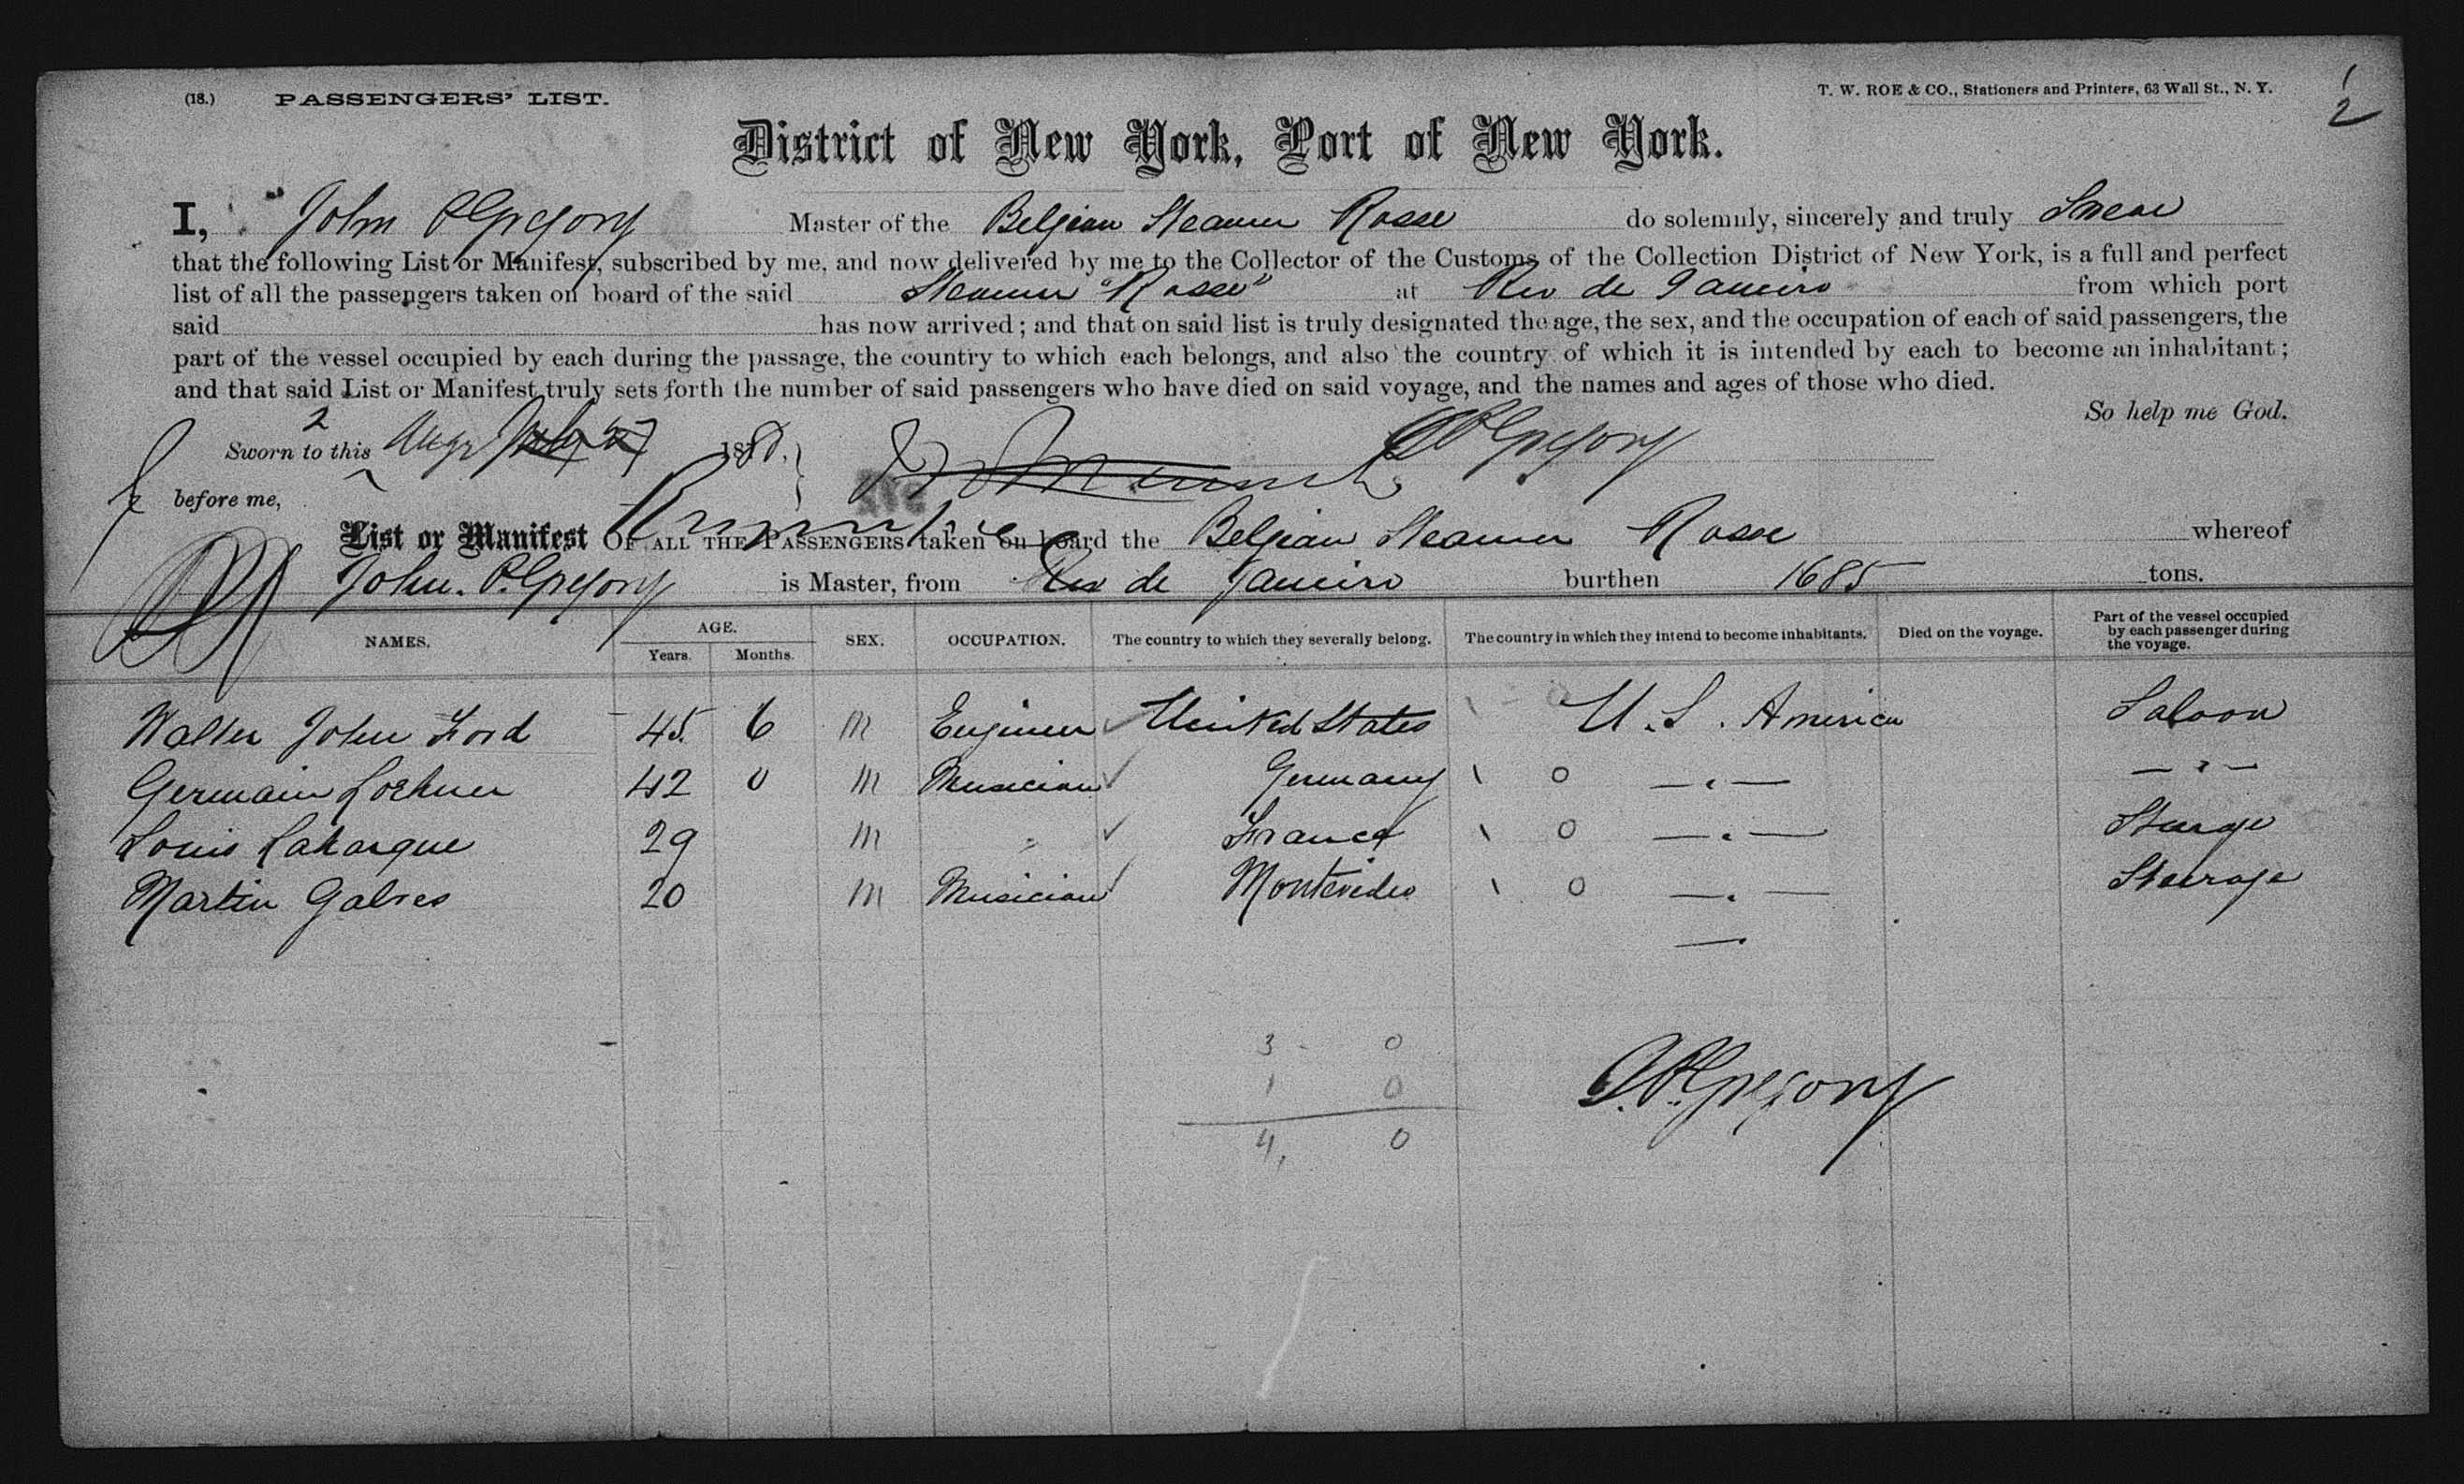 (18.) PASSENGERS' LIST. T. W. ROE & CO., Stationers and Printers, 63 Wall St., N. Y.
1
2
District of New York, Port of New York.
I, John P Gregory Master of the Belgian Steamer Rosse do solemnly, sincerely and truly Swear
that the following List or Manifest, subscribed by me, and now delivered by me to the Collector of the Customs of the Collection District of New York, is a full and perfect
list of all the passengers taken on board of the said Steamer "Rosse" at Rio de Janeiro from which port
said has now arrived; and that on said list is truly designated the age, the sex, and the occupation of each of said passengers, the
part of the vessel occupied by each during the passage, the country to which each belongs, and also the country of which it is intended by each to become an inhabitant;
and that said List or Manifest truly sets forth the number of said passengers who have died on said voyage, and the names and ages of those who died.
So help me God.
Sworn to this 2 Aug 1880. J P Gregory
before me,
List or Manifest OF ALL THE PASSENGERS taken on board the Belgian Steamer Rosse whereof
John. P. Gregory is Master, from Rio de Janeiro burthen 1685 tons.
NAMES. AGE. Years. Months. SEX. OCCUPATION. The country to which they severally belong. The country in which they intend to become inhabitants. Died on the voyage. Part of the vessel occupied by each passenger during the voyage.
Walter John Ford 45 6 M Engineer United States U. S. America Saloon
Germain 42 0 M Musician Germany 0 — " — — " —
Louis Labarque 29 M " France 0 — " — Steerage
Martin Galves 20 M Musician Montevideo 0 — " — Steerage
3 0
1 0
4, 0
J. P. Gregory